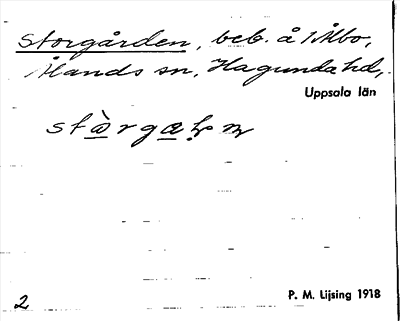 Storgården, beb. å 1 Åbo,
Ålands sn, Hagunda hd,
Uppsala län
stὰrga
P. M. Lijsing 1918
2